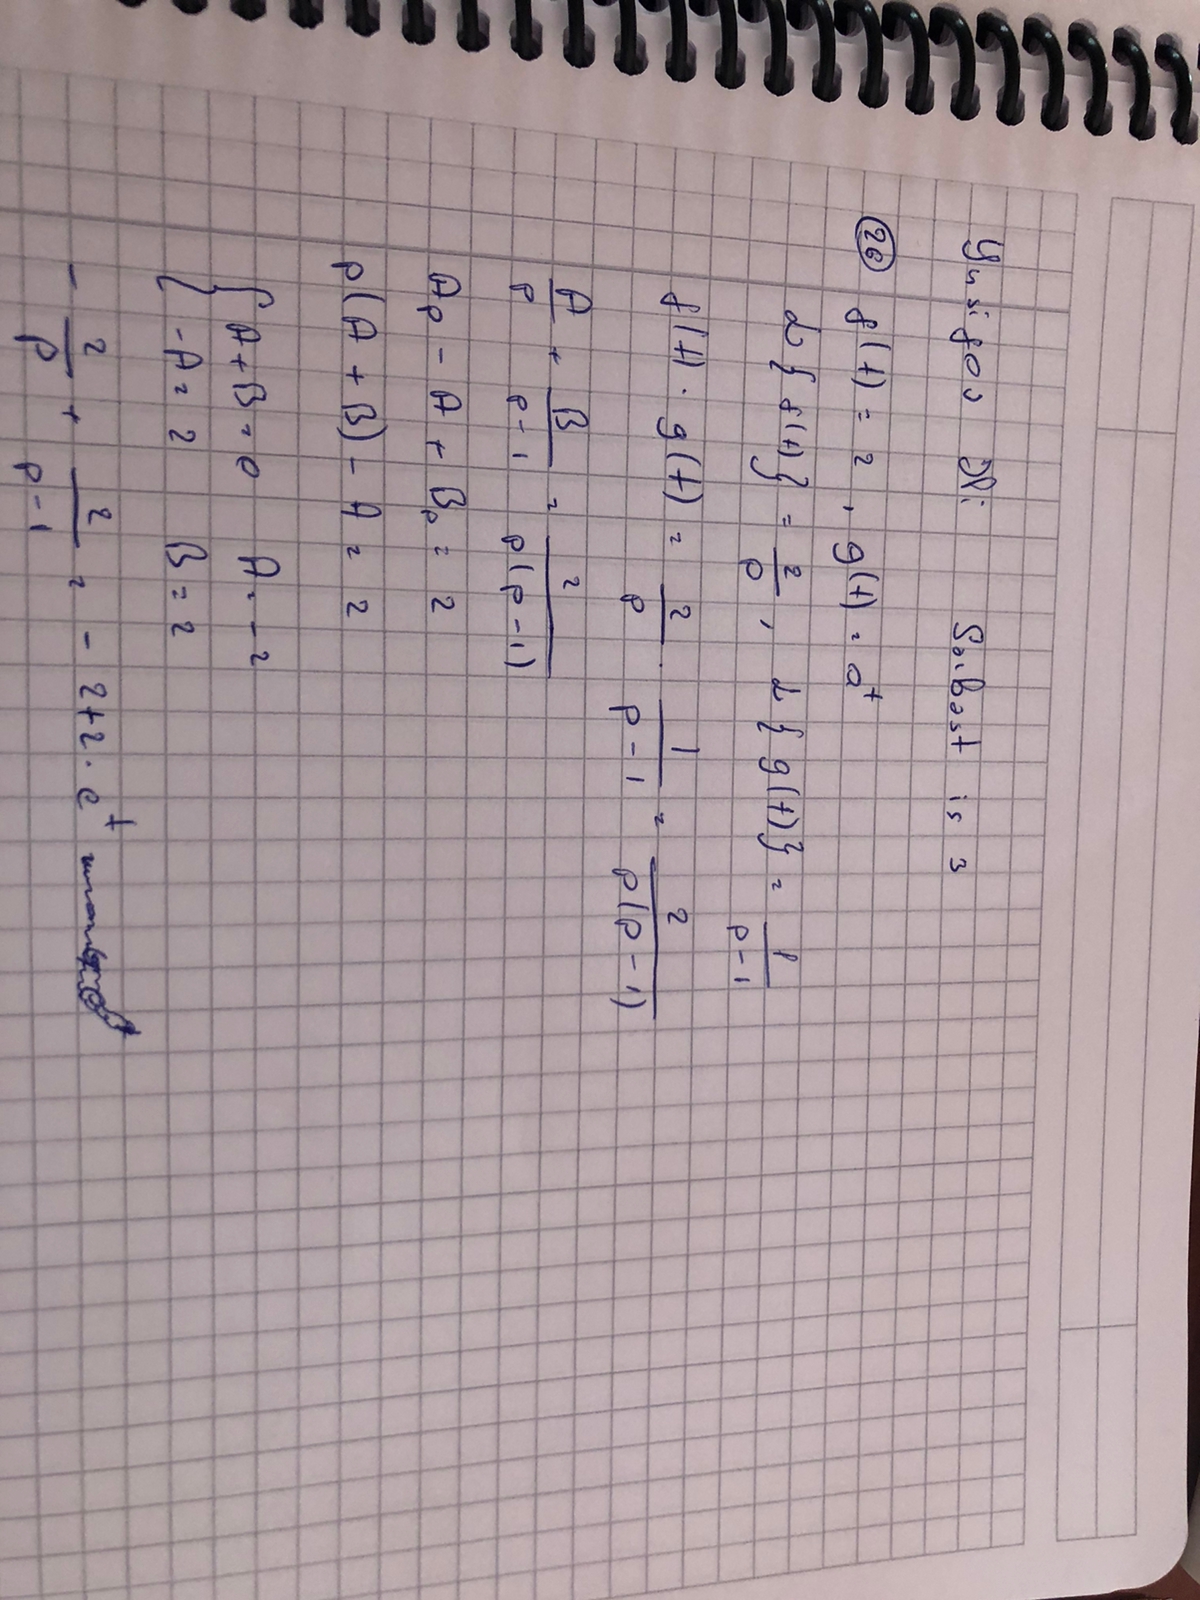 Yusifov Əli Sərbəst iş 3
(26) f(t) = 2, g(t) = e^t
L{f(t)} = 2/p, L{g(t)} = 1/(p-1)
f(t) · g(t) = 2/p · 1/(p-1) = 2/(p(p-1))
A/p + B/(p-1) = 2/(p(p-1))
Ap - A + Bp = 2
p(A + B) - A = 2
{ A + B = 0 A = -2
{ -A = 2 B = 2
- 2/p + 2/(p-1) = -2 + 2 · e^t